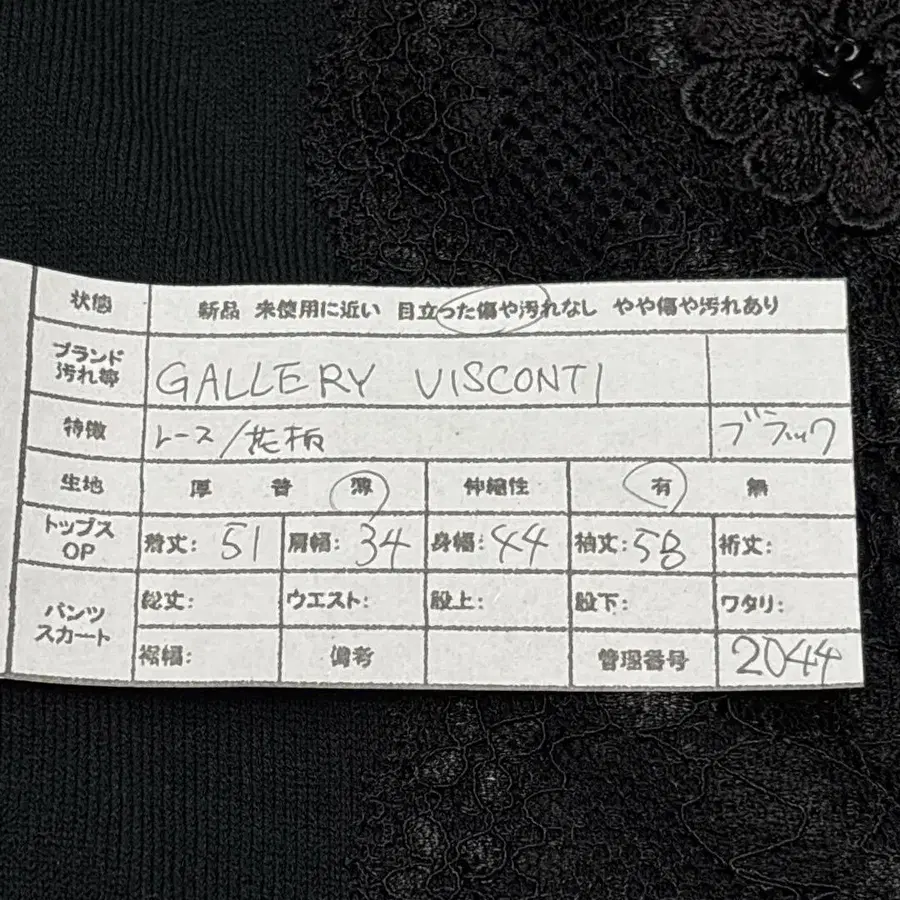 状態 新品 未使用に近い 目立った傷や汚れなし やや傷や汚れあり
ブランド
汚れ等 GALLERY VISCONTI
特徴 レース/花柄 ブラック
生地 厚 普 薄 伸縮性 有 無
トップス
OP 着丈: 51 肩幅: 34 身幅: 44 袖丈: 58 裄丈:
パンツ
スカート 総丈: ウエスト: 股上: 股下: ワタリ:
裾幅: 備考 管理番号 2044